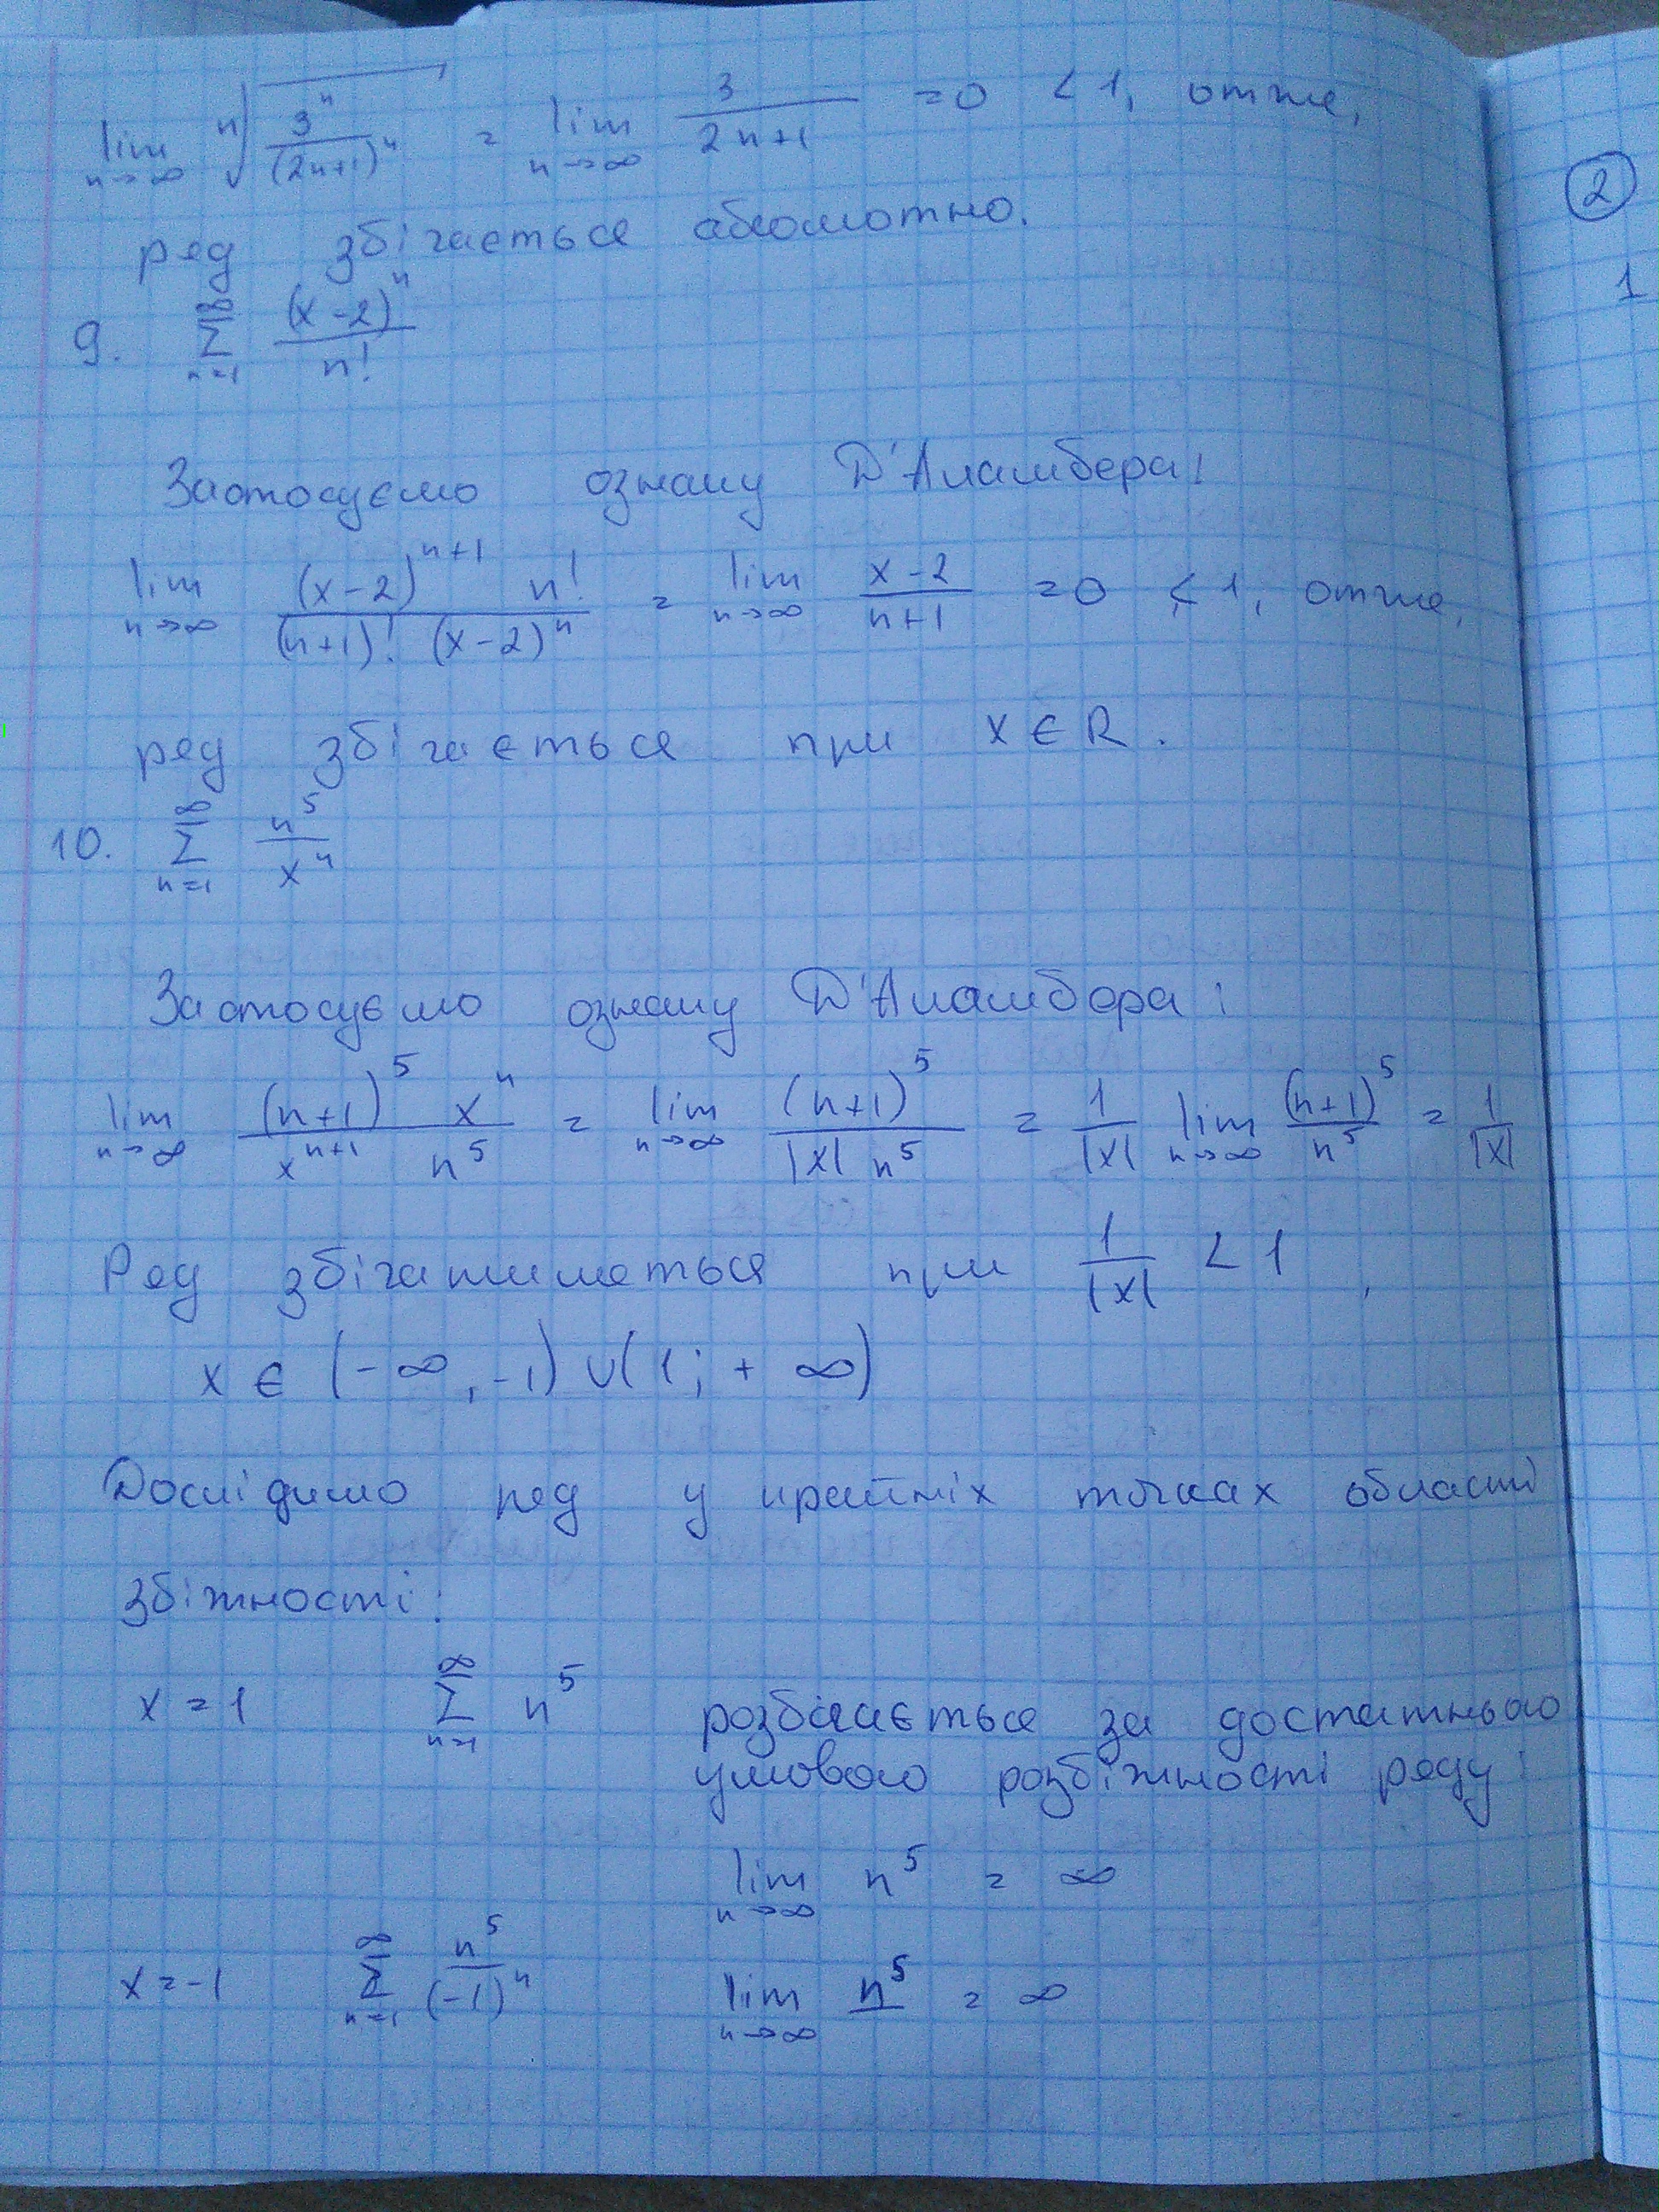 lim n→∞ ⁿ√(3ⁿ/(2n+1)ⁿ) = lim n→∞ 3/(2n+1) = 0 < 1, отже,
ряд збігається абсолютно.
9. ∑ n=1 ∞ (x-2)ⁿ/n!
Застосуємо ознаку Д'Аламбера:
lim n→∞ (x-2)ⁿ⁺¹ n!/((n+1)! (x-2)ⁿ) = lim n→∞ (x-2)/(n+1) = 0 < 1, отже,
ряд збігається при x ∈ R.
10. ∑ n=1 ∞ n⁵/xⁿ
Застосуємо ознаку Д'Аламбера:
lim n→∞ (n+1)⁵ xⁿ/(xⁿ⁺¹ n⁵) = lim n→∞ (n+1)⁵/(|x| n⁵) = 1/|x| lim n→∞ (n+1)⁵/n⁵ = 1/|x|
Ряд збігатиметься при 1/|x| < 1,
x ∈ (-∞, -1) ∪ (1; +∞)
Дослідимо ряд у крайніх точках області
збіжності:
x = 1 ∑ n=1 ∞ n⁵ розбігається за достатньою
умовою розбіжності ряду:
lim n→∞ n⁵ = ∞
x = -1 ∑ n=1 ∞ n⁵/(-1)ⁿ lim n→∞ n⁵ = ∞
2
1